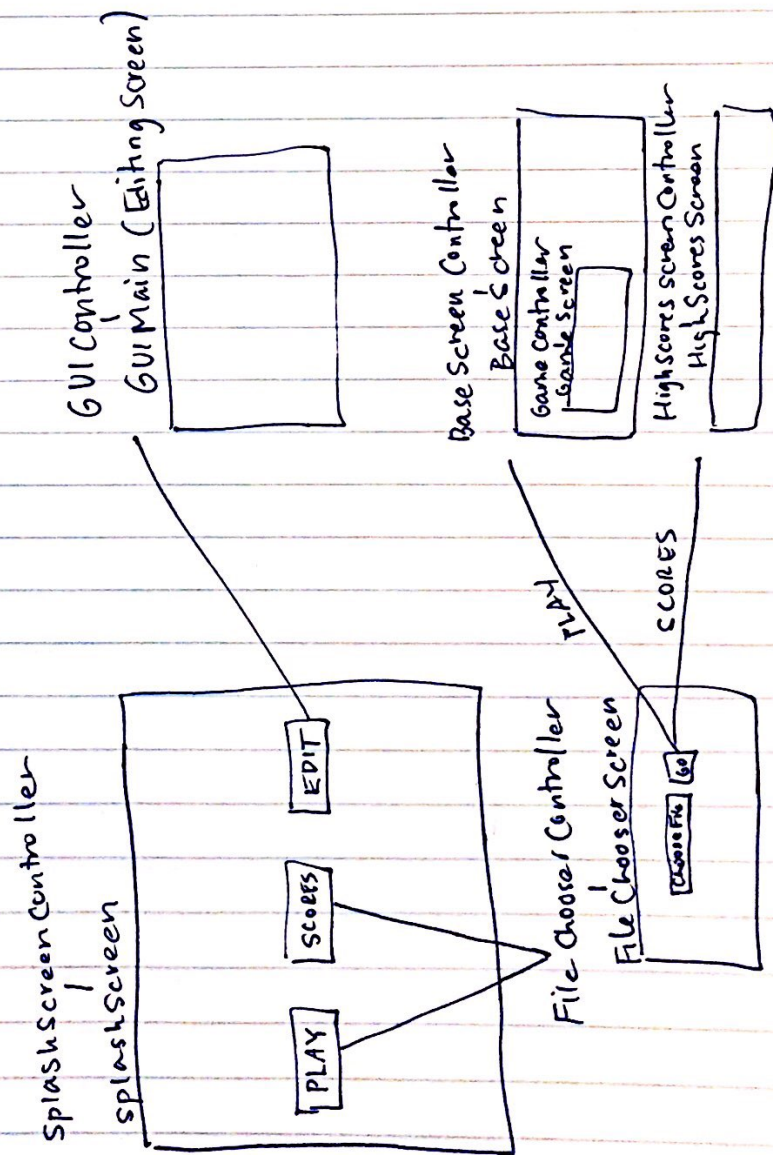 Splash Screen Controller
Splash Screen
PLAY
SCORES
EDIT
GUI Controller
GUI Main (Editing Screen)
File Chooser Controller
File Chooser Screen
Choose File
GO
PLAY
SCORES
Base Screen Controller
Base Screen
Game Controller
Game Screen
High scores screen Controller
High Scores Screen